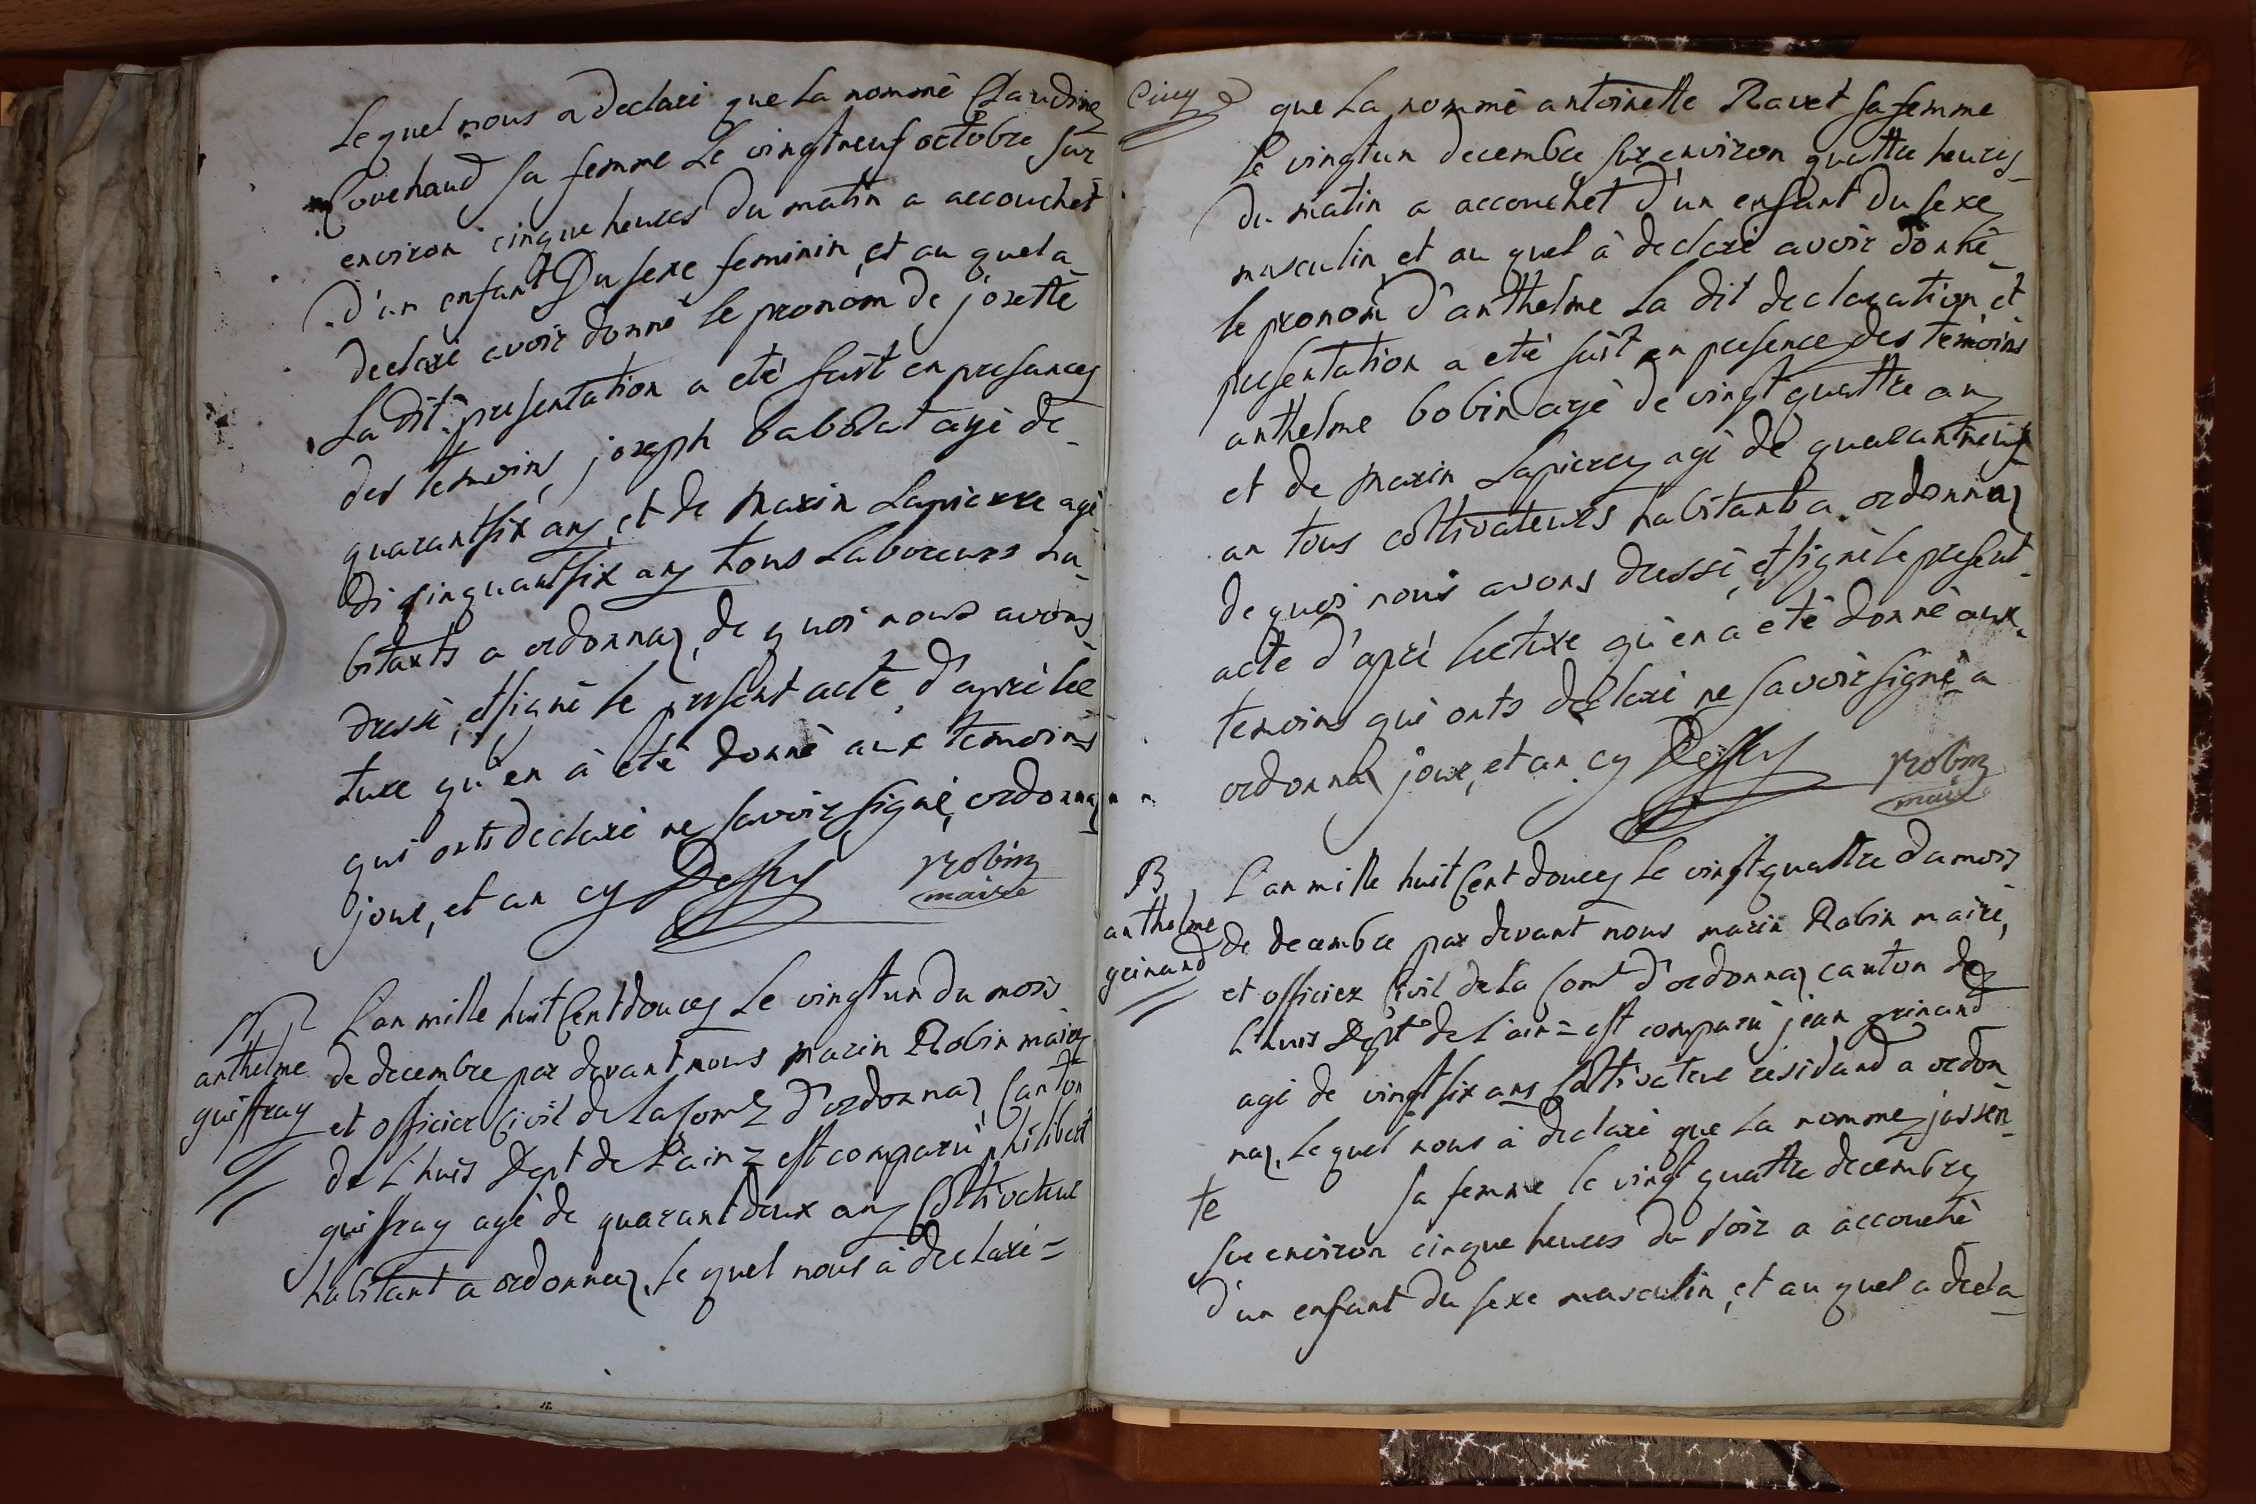 Lequel nous a declaré que la nommé Claudine
Couchaud sa femme Le vingtneuf octobre sur
environ cinque heures du matin a accouchét
d'un enfant Du sexe feminin, et au quel a
declaré avoir donné le pronom de josette
La dit presentation a eté fait en presances
des temoins joseph babolat agé de
quarantsix ans, et de marin Lapierre agé
di sinquantsix ans tous Laboreurs ha-
bitants a ordonnaz, de quoi nous avons
dressé, et signé le present acte, d'apré lec
ture qu'en à eté donné aux temoins
qui onts declaré ne savoir signé, ordonnaz
jour, et an cy Deffly Robin
maire
N
anthelme
guiffray
L'an mille huit Cent douces Le vingtun du mois
de decembre par devant nous marin Robin maire
et officier Civil de la Com^e d'ordonnaz Canton
de L'huis Dept de L'ain = est comparu philibert
guiffray agé de quarantdeux ans Coltivateur
habitant a ordonnaz, le quel nous à declaré =
Cinq
que La nommé antoinette Ravet sa femme
le vingtun decembre sur environ quattre heures
du matin a accouchét d'un enfant du sexe
masculin et au quel à declaré avoir donné
le pronom d'anthelme La dit declaration, et
presentation a eté fait en presence des temoins
anthelme bobin agé de vingt quattre ans
et de marin Lapierre agé de quarantneuf
an tous coltivateurs habitants a ordonnaz
de quoi nous avons dressé, et signé le present
acte d'apré lecture qu'en a eté donné aux
temoins qui onts declaré ne savoir signé a
ordonnaz jour, et an cy Deffly Robin
maire
B
anthelme
grinand
L'an mille huit Cent douces Le vingt quattre du mois
de decembre par devant nous marin Robin maire,
et officier Civil de La Com^e d'ordonnaz canton de
L'huis Dept de L'ain = est comparu jean grinand
agé de vingt six ans Coltivateur residand a ordon-
naz, Le quel nous à declaré que La nommez jossen-
te sa femme le vingt quattre decembre
sur environ cinque heures du soir a accouché
d'un enfant du sexe masculin, et au quel a decla-